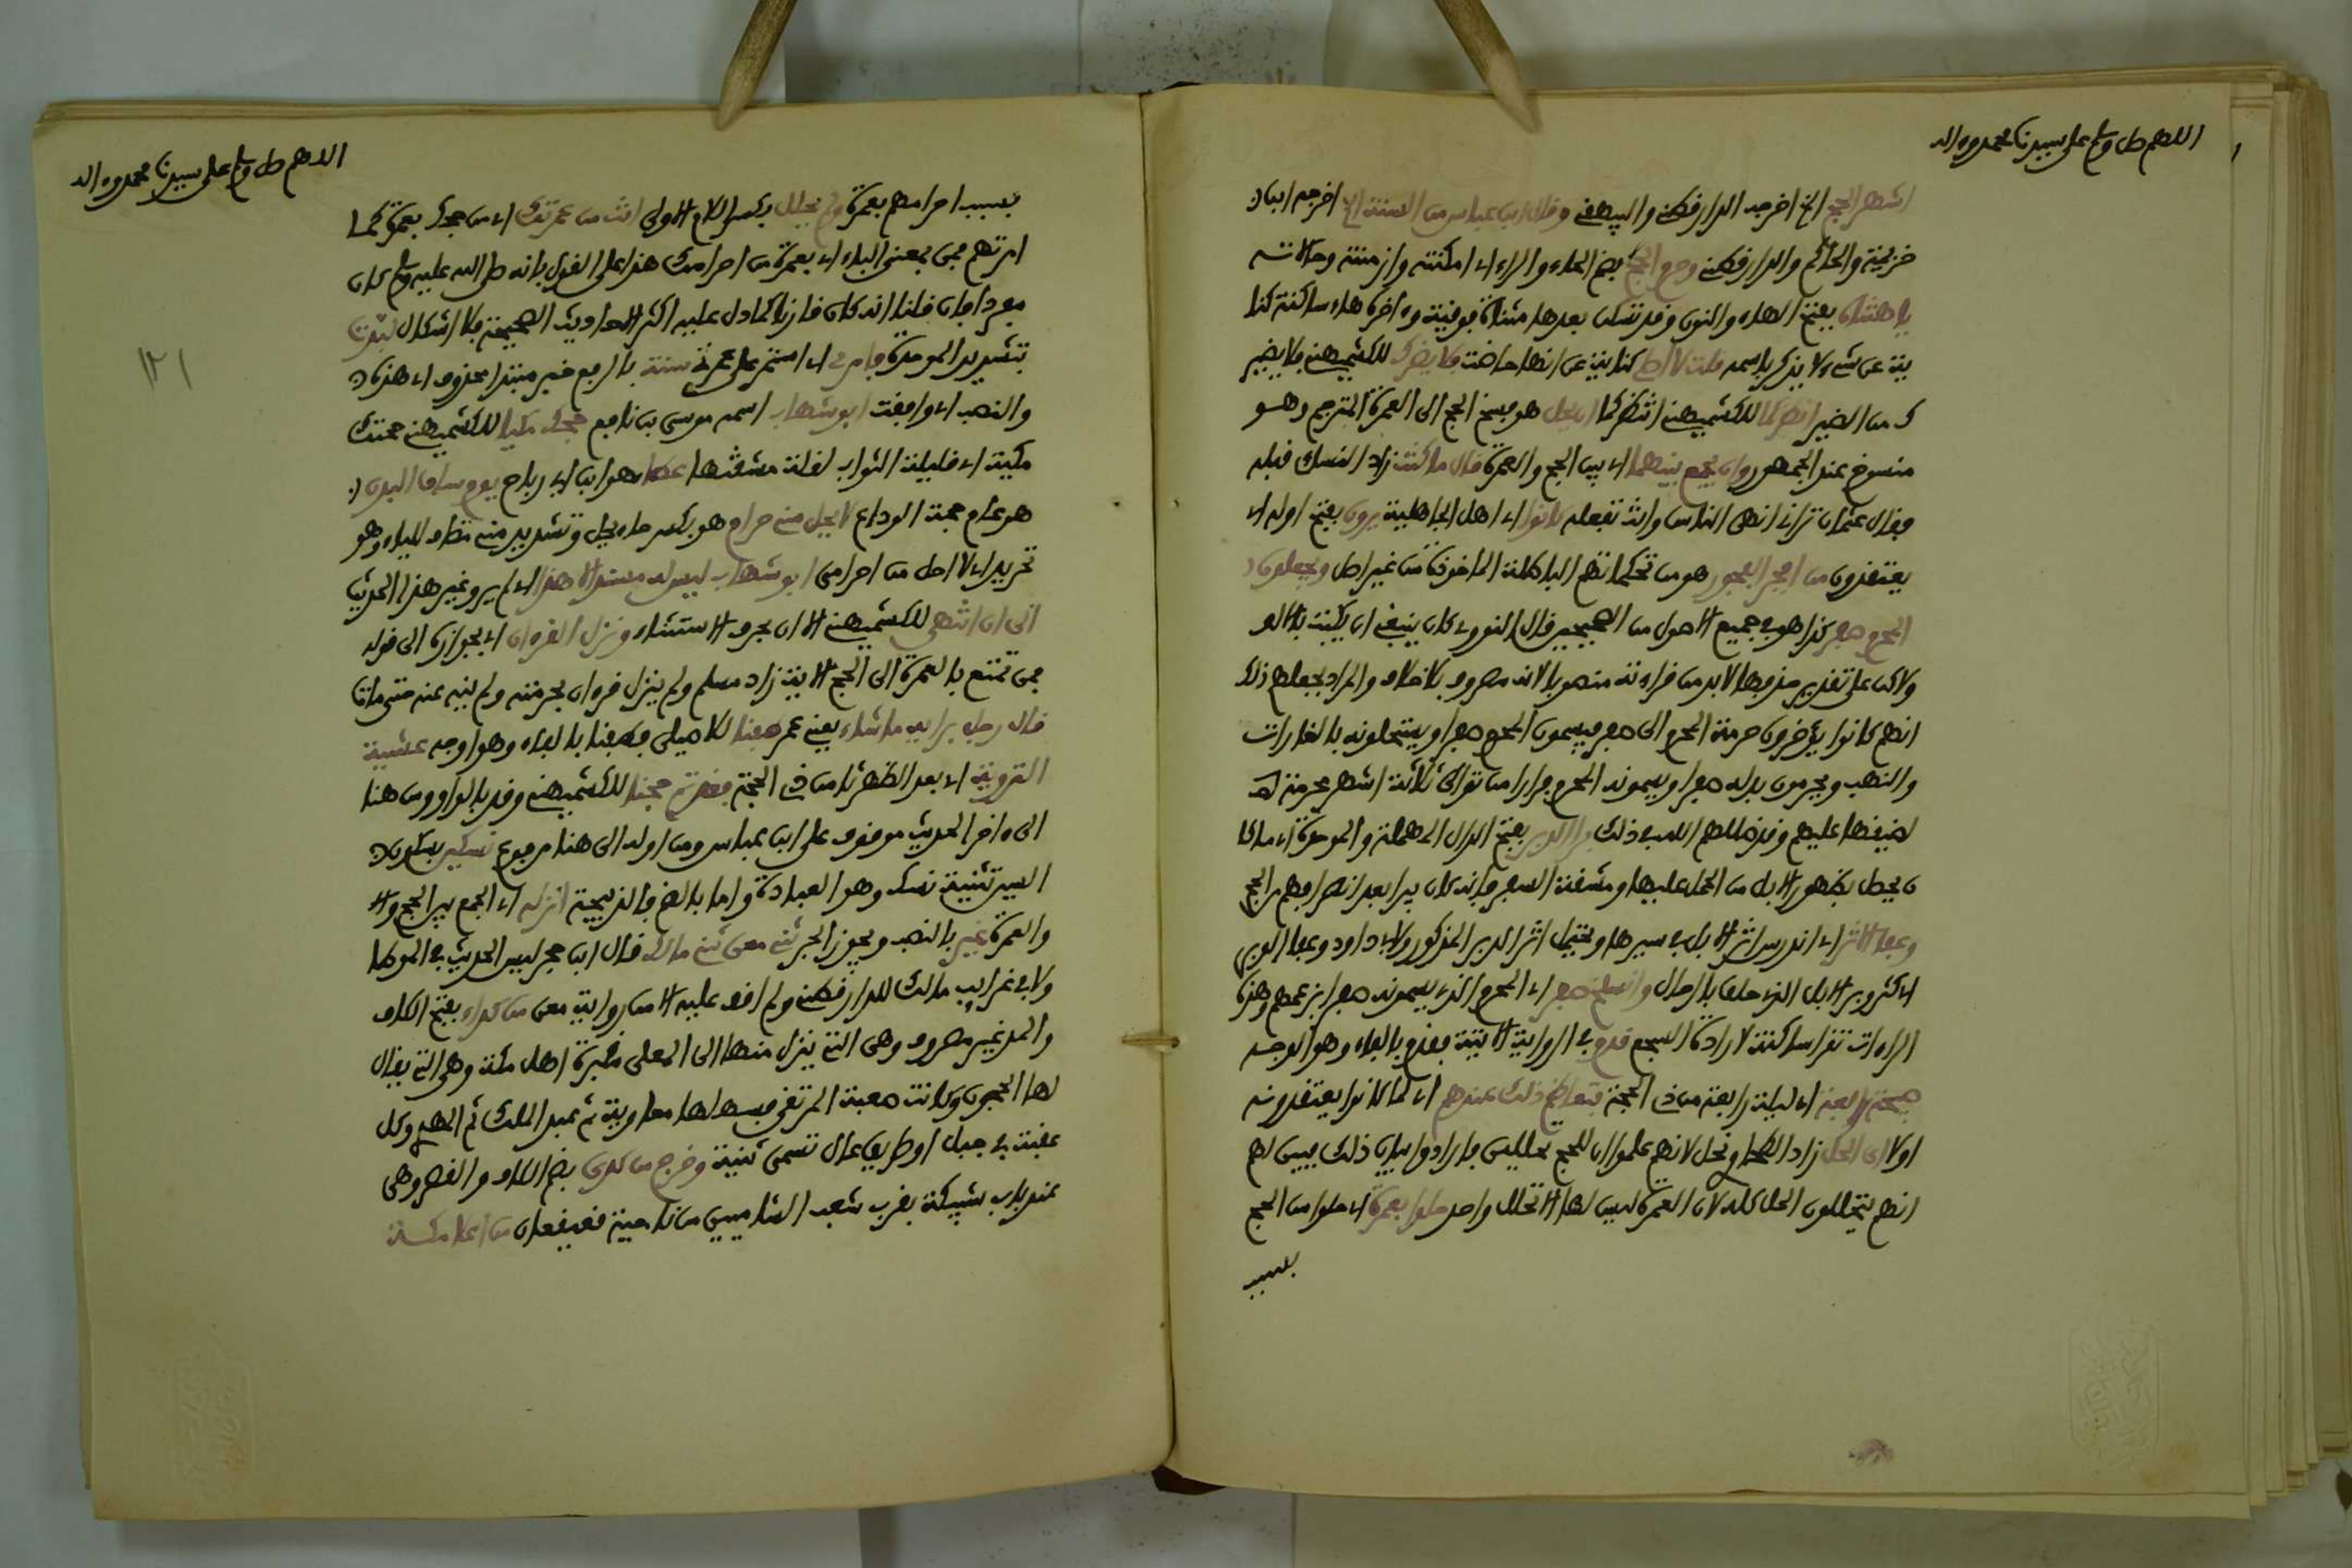 اللهم صل وسلم على سيدنا محمد وءاله
اشهر الحج الخ اخرجه الدارقطني والبيهقي وقال ابن عباس من السنة الخ اخرجه ابنا
خزيمة والحاكم والدارقطني وحرم الحج بضم الحاء والراء اي امكنته وازمنته وحالاته
يا هنتاه بفتح الهاء والنون وقد تسكن بعدها مثناة فوقية وءاخره هاء ساكنة كنا
ية عن شيء لا يذكر باسمه قلت لا اصلي كناية عن انها حاضت فلا يضرك للكشميهني فلا يضير
ك من الضير انظركما للكشميهني انتظركما ان يحل هو فسخ الحج الى العمرة المترجم وهو
منسوخ عند الجمهور وان يجمع بينهما اي بين الحج والعمرة قال ما كنت زاد النسائي قبله
فقال عثمان تراني انهى الناس وانت تفعله كانوا اي اهل الجاهلية يرون بفتح اوله اي
يعتقدون من افجر الفجور هو من تحكماتهم الباطلة الماخوذة من غير اصل ويجعلون
المحرم صفر كذا هو في جميع الاصول من الصحيحين قال النووي كان ينبغي ان يكتب بالالف
ولاكن على تقدير حذفها لابد من قراءته منصوبا لانه مصروف بلا خلاف والمراد بجعلهم ذلك
انهم كانوا يؤخرون حرمة المحرم الى صفر فيسمون المحرم صفرا ويستحلونه بالغارات
والنهب ويحرمون بدله صفرا ويسمونه المحرم فرارا من توالي ثلاثة اشهر محرمة
لضيقها عليهم وقد ضللهم الله في ذلك برا الدبر بفتح الدال المهملة والموحدة اي ما كا
ن يحصل بظهور الابل من الحمل عليها ومشقة السفر فانه كان يبرا بعد انصرافهم من الحج
وعفا الاثر اي اندرس اثر الابل في سيرها ويحتمل اثر الدبر المذكور ولابي داود وعفا الوبر
اي كثر وبر الابل الذي حلق بالرحال وانسلخ صفر اي المحرم الذي يسمونه صفرا بزعمهم وهذه
الراءات تقرا ساكنة لارادة السجع قدم في الرواية الاتية فقدم بالفاء وهو الوجه
صبحة رابعة اي ليلة رابعة من ذي الحجة فتعاظم ذلك عندهم اي لما كانوا يعتقدونه
اولا اي الحل زاد الطحاوي نحل لانهم علموا ان للحج تحللين فارادوا بيان ذلك فبين لهم
انهم يتحللون الحل كله لان العمرة ليس لها الا تحلل واحد حلوا بعمرة اي حلوا من الحج
بسبب
اللهم صل وسلم على سيدنا محمد وءاله
١٢١
بسبب احرامهم بعمرة ولم تحلل بكسر اللام الاولى انت من عمرتك اي من حجك بعمرة كما
امرتهم فمن بمعنى الباء اي بعمرة من احرامك هذا على القول بانه صلى الله عليه وسلم كان
مفردا فان قلنا انه كان قارنا كما دل عليه اكثر الاحاديث الصحيحة فلا اشكال لبدت
بتشديد الموحدة فامرني اي استمر على عمرتي سنة بالرفع خبر مبتدا محذوف اي هذه
والنصب اي وافقت ابو شهاب اسمه موسى بن نافع حجك مكيا للكشميهني حجتك
مكية اي قليلة الثواب لقلة مشقتها عطاء هو ابن ابي رباح يوم ساق البدن
هو عام حجة الوداع لا يحل مني حرام هو بكسر حاء يحل وتشديد مني مضاف للياء وهو
تجريد اي لا احل من احرامي ابو شهاب ليس له مسند الا هذا اي لم يرو غير هذا الحديث
الى ان انتهى للكشميهني الا ان بحرف الاستثناء ونزل القرءان اي بجوازه الى قوله
فمن تمتع بالعمرة الى الحج الاية زاد مسلم ولم ينزل قرءان بحرمته ولم ينه عنه حتى مات
قال رجل برايه ما شاء يعني عمر طفنا للاصيلي فطفنا بالفاء وهو اوجه عشية
التروية اي بعد الظهر ثامن ذي الحجة فقد تم حجنا للكشميهني وقد بالواو ومن هنا
الى ءاخر الحديث موقوف على ابن عباس ومن اوله الى هنا مرفوع نسكين بسكون
السين تثنية نسك وهو العبادة واما بالضم فالذبيحة انزله اي الجمع بين الحج
والعمرة غير بالنصب ويجوز الجر ثني معن ثني مالك قال ابن حجر ليس الحديث في الموطا
ولا في غرايب مالك للدارقطني ولم اقف عليه الا من رواية معن من كداء بفتح الكاف
والمد غير مصروف وهي التي ينزل منها الى المعلى مقبرة اهل مكة وهي التي يقال
لها الحجون وكانت صعبة المرتقى فسهلها معاوية ثم عبد الملك ثم المهدي وكل
عقبة في جبل او طريق عال تسمى ثنية وخرج من كدى بضم الكاف والقصر وهي
عند باب شبيكة بقرب شعب الشاميين من ناحية قعيقعان من اعلا مكة